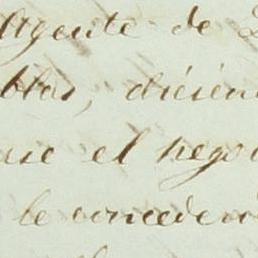 Agente de
blas, dicien
ase el nego
le concedero